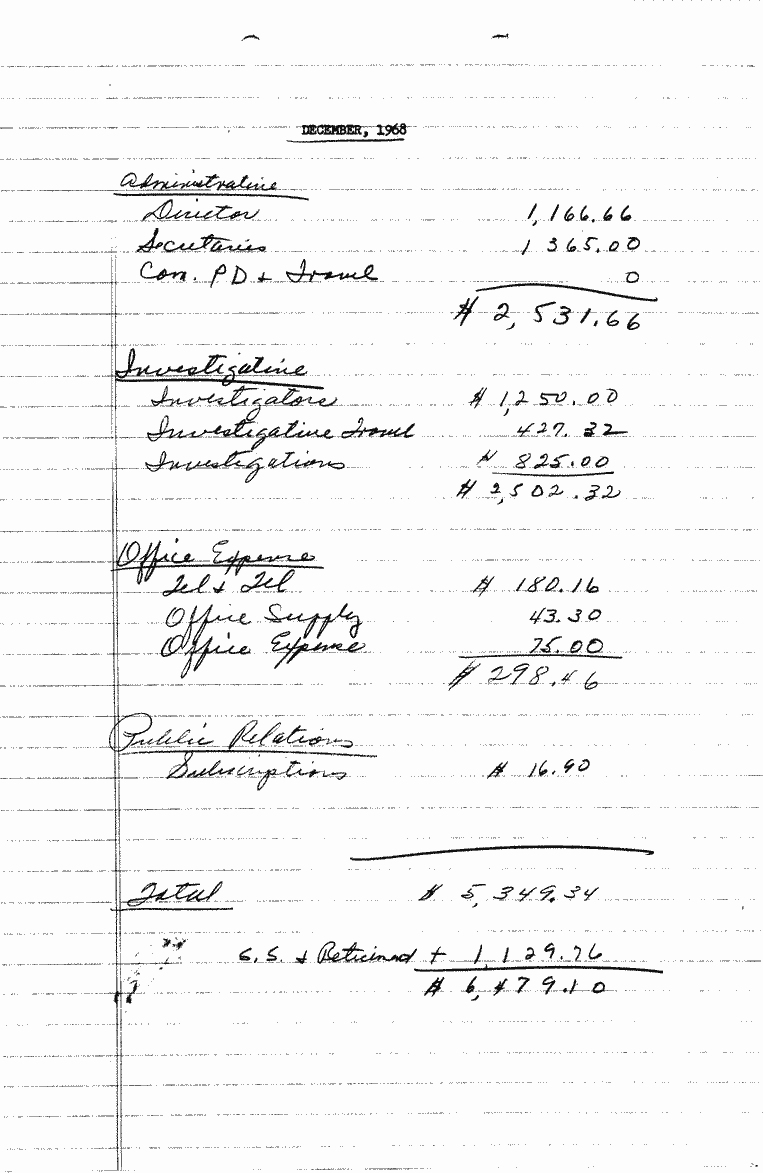 DECEMBER, 1968
Administrative
Director 1,166.66
Secretaries 1 365.00
Com. PD + Travel 0
$ 2,531.66
Investigative
Investigators $ 1,250.00
Investigative Travel 427.32
Investigations $ 825.00
$ 2,502.32
Office Expense
Tel & Tel $ 180.16
Office Supply 43.30
Office Expense 75.00
$ 298.46
Public Relations
Subscriptions $ 16.90
Total $ 5,349.34
S.S. & Retirement + 1,129.76
$ 6,479.10